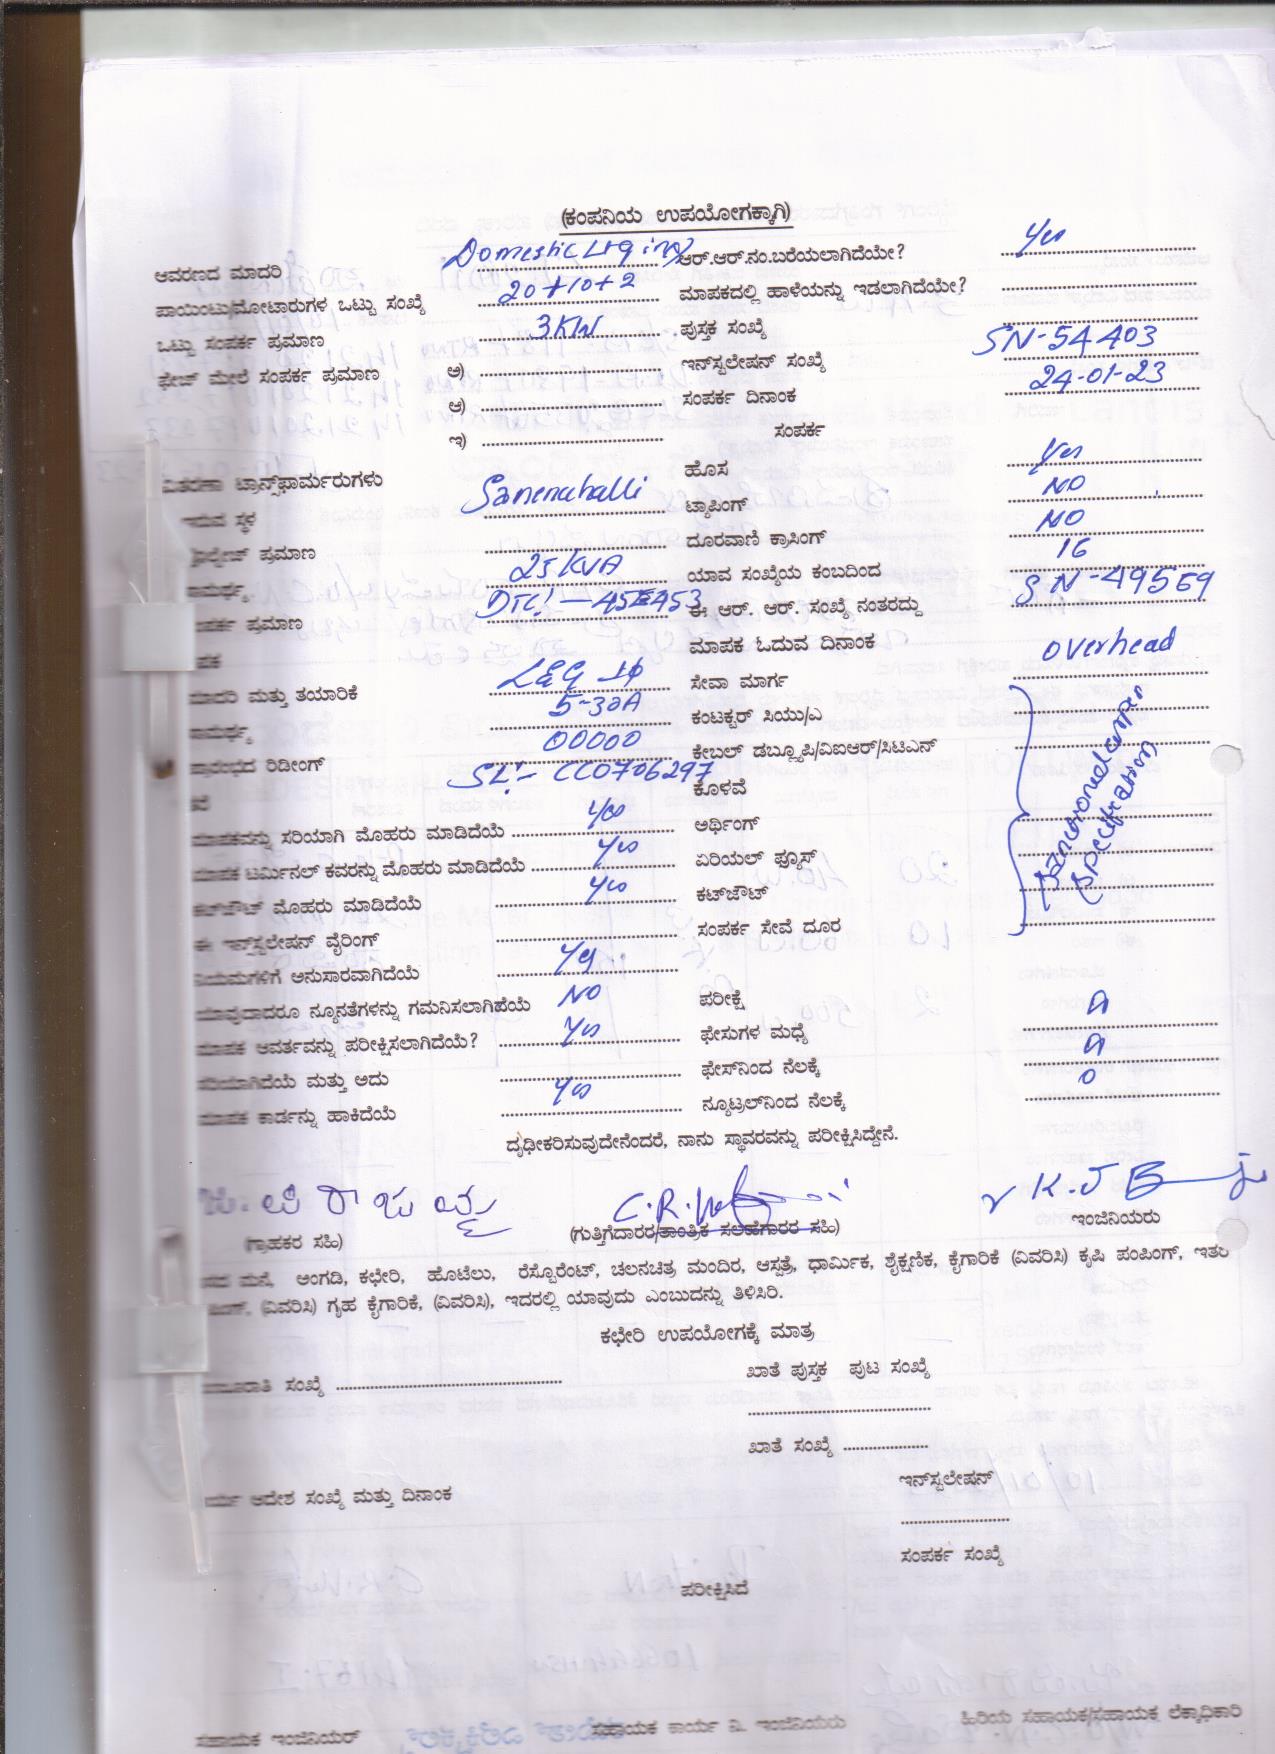 (ಕಂಪನಿಯ ಉಪಯೋಗಕ್ಕಾಗಿ)
ಆವರಣದ ಮಾದರಿ Domestic Ltg ing ಆರ್.ಆರ್.ನಂ.ಬರೆಯಲಾಗಿದೆಯೇ? Yes
ಪಾಯಿಂಟು/ಮೋಟಾರುಗಳ ಒಟ್ಟು ಸಂಖ್ಯೆ 20+10+2 ಮಾಪಕದಲ್ಲಿ ಹಾಳೆಯನ್ನು ಇಡಲಾಗಿದೆಯೇ?
ಒಟ್ಟು ಸಂಪರ್ಕ ಪ್ರಮಾಣ 3KW ಪುಸ್ತಕ ಸಂಖ್ಯೆ
ಫೇಜ್ ಮೇಲೆ ಸಂಪರ್ಕ ಪ್ರಮಾಣ ಅ) ಇನ್‌ಸ್ಟಲೇಷನ್ ಸಂಖ್ಯೆ SN-54403
ಆ) ಸಂಪರ್ಕ ದಿನಾಂಕ 24-01-23
ಇ) ಸಂಪರ್ಕ
ವಿತರಣಾ ಟ್ರಾನ್ಸ್‌ಫಾರ್ಮರುಗಳು ಹೊಸ Yes
ಇರುವ ಸ್ಥಳ Sanenahalli ಟ್ಯಾಪಿಂಗ್ NO
ಪ್ರಮಾಣ ದೂರವಾಣಿ ಕ್ರಾಸಿಂಗ್ NO
ಸಾಮರ್ಥ್ಯ 25KVA ಯಾವ ಸಂಖ್ಯೆಯ ಕಂಬದಿಂದ 16
ಸಂಪರ್ಕ ಪ್ರಮಾಣ DTC:-45E453 ಈ ಆರ್. ಆರ್. ಸಂಖ್ಯೆ ನಂತರದ್ದು SN-49559
ಮಾಪಕ ಮಾಪಕ ಓದುವ ದಿನಾಂಕ
ಮಾದರಿ ಮತ್ತು ತಯಾರಿಕೆ L&G 1φ ಸೇವಾ ಮಾರ್ಗ overhead
ಸಾಮರ್ಥ್ಯ 5-30A ಕಂಟಕ್ಟರ್ ಸಿಯು/ಎ
ಪ್ರಾರಂಭದ ರಿಡೀಂಗ್ 00000 ಕ್ರೇಬಲ್ ಡಬ್ಲ್ಯೂಪಿ/ವಿಐಆರ್/ಸಿಟಿಎನ್
SL:- CC0706297 ಕೊಳವೆ
ಮಾಪಕವನ್ನು ಸರಿಯಾಗಿ ಮೊಹರು ಮಾಡಿದೆಯೆ Yes ಅರ್ಥಿಂಗ್
ಮಾಪಕ ಟರ್ಮಿನಲ್ ಕವರನ್ನು ಮೊಹರು ಮಾಡಿದೆಯೆ Yes ಏರಿಯಲ್ ಫ್ಯೂಸ್
ಕಟ್‌ಔಟ್ ಮೊಹರು ಮಾಡಿದೆಯೆ Yes ಕಟ್‌ಔಟ್
ಈ ಇನ್‌ಸ್ಟಲೇಷನ್ ವೈರಿಂಗ್ ಸಂಪರ್ಕ ಸೇವೆ ದೂರ
ನಿಯಮಗಳಿಗೆ ಅನುಸಾರವಾಗಿದೆಯೆ Yes
ಯಾವುದಾದರೂ ನ್ಯೂನತೆಗಳನ್ನು ಗಮನಿಸಲಾಗಿದೆಯೆ NO ಪರೀಕ್ಷೆ
ಮಾಪಕ ಆವರ್ತವನ್ನು ಪರೀಕ್ಷಿಸಲಾಗಿದೆಯೆ? Yes ಫೇಸುಗಳ ಮಧ್ಯೆ
ಸರಿಯಾಗಿದೆಯೆ ಮತ್ತು ಅದು ಫೇಸ್‌ನಿಂದ ನೆಲಕ್ಕೆ
ಮಾಪಕ ಕಾರ್ಡನ್ನು ಹಾಕಿದೆಯೆ Yes ನ್ಯೂಟ್ರಲ್‌ನಿಂದ ನೆಲಕ್ಕೆ 0
ದೃಢೀಕರಿಸುವುದೇನೆಂದರೆ, ನಾನು ಸ್ಥಾವರವನ್ನು ಪರೀಕ್ಷಿಸಿದ್ದೇನೆ.
(ಗ್ರಾಹಕರ ಸಹಿ) (ಗುತ್ತಿಗೆದಾರರ/ತಾಂತ್ರಿಕ ಸಲಹೆಗಾರರ ಸಹಿ) ಇಂಜಿನಿಯರು
ಮನೆ, ಅಂಗಡಿ, ಕಛೇರಿ, ಹೊಟೆಲು, ರೆಸ್ಟೊರೆಂಟ್, ಚಲನಚಿತ್ರ ಮಂದಿರ, ಆಸ್ಪತ್ರೆ, ಧಾರ್ಮಿಕ, ಶೈಕ್ಷಣಿಕ, ಕೈಗಾರಿಕೆ (ವಿವರಿಸಿ) ಕೃಷಿ ಪಂಪಿಂಗ್, ಇತರೆ
(ವಿವರಿಸಿ) ಗೃಹ ಕೈಗಾರಿಕೆ, (ವಿವರಿಸಿ), ಇದರಲ್ಲಿ ಯಾವುದು ಎಂಬುದನ್ನು ತಿಳಿಸಿರಿ.
ಕಛೇರಿ ಉಪಯೋಗಕ್ಕೆ ಮಾತ್ರ
ಸಂಖ್ಯೆ ಖಾತೆ ಪುಸ್ತಕ ಪುಟ ಸಂಖ್ಯೆ
ಖಾತೆ ಸಂಖ್ಯೆ
ಕಾರ್ಯ ಆದೇಶ ಸಂಖ್ಯೆ ಮತ್ತು ದಿನಾಂಕ ಇನ್‌ಸ್ಟಲೇಷನ್
ಸಂಪರ್ಕ ಸಂಖ್ಯೆ
ಪರೀಕ್ಷಿಸಿದೆ
ಸಹಾಯಕ ಇಂಜಿನಿಯರ್ ಸಹಾಯಕ ಕಾರ್ಯ ನಿ. ಇಂಜಿನಿಯರು ಹಿರಿಯ ಸಹಾಯಕ/ಸಹಾಯಕ ಲೆಕ್ಕಾಧಿಕಾರಿ